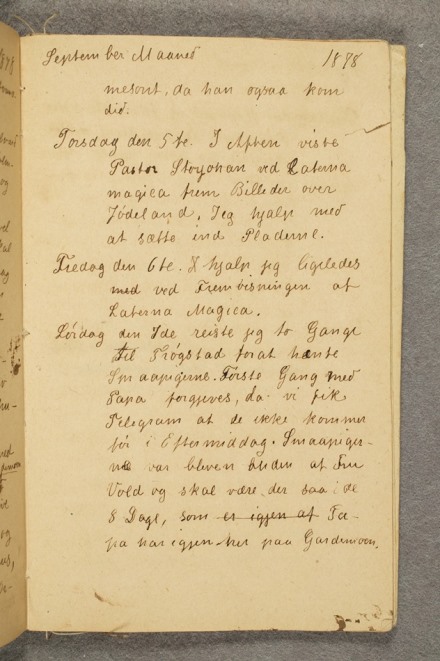 September Maaned 1878
mesont, da han ogsaa kom
did.
Torsdag den 5te. I Aften viste
Pastor Stoyohan ved Laterna
magica frem Billeder over
Jödeland. Jeg hjalp med
at sætte ind Pladerne.
Fredag den 6te. I hjalp jeg ligeledes
med ved Fremvisningen af
Laterna Magica.
Lördag den 7de reiste jeg to Gange
til Trögstad forat hænte
Smaapigerne. Förste Gang med
Papa forgjeves, da vi fik
Telegram at de ikke kommer
för i Eftermiddag. Smaapiger-
ne var bleven buden af Fru
Vold og skal være der saa i de
8 Dage, som er igjen af Pa-
pa har igjen her paa Gardemoen.